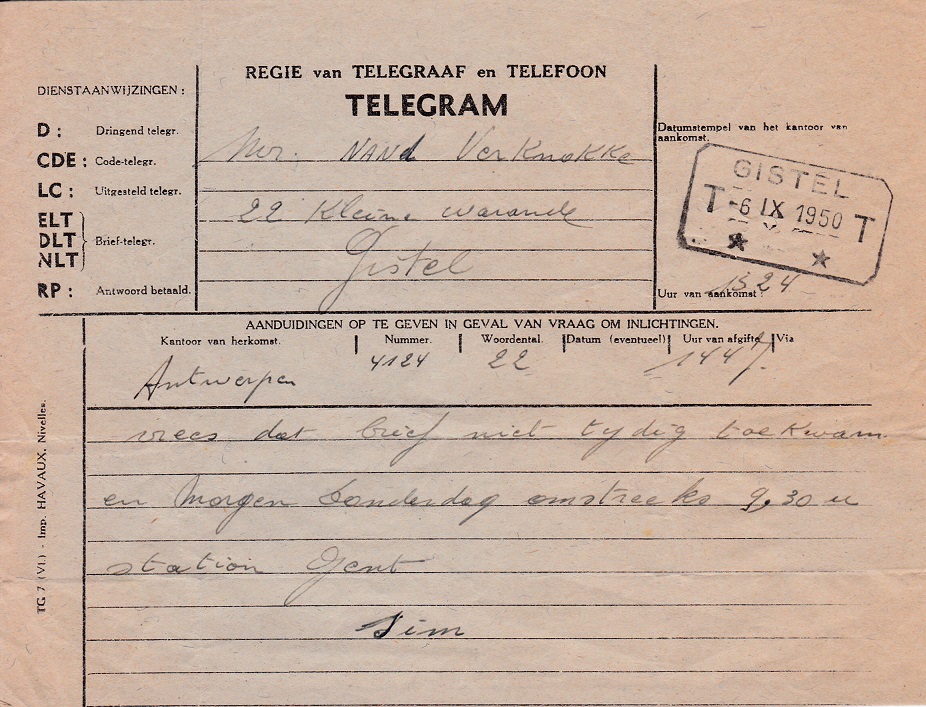 REGIE van TELEGRAAF en TELEFOON
TELEGRAM
DIENSTAANWIJZINGEN :
D : Dringend telegr.
CDE : Code-telegr.
LC : Uitgesteld telegr.
ELT
DLT Brief-telegr.
NLT
RP : Antwoord betaald.
Mr. NANd VerKnokke
22 Kleine warande
Gistel
Datumstempel van het kantoor van
aankomst.
GISTEL
T -6 IX 1950 T
Uur van aankomst : 1524
AANDUIDINGEN OP TE GEVEN IN GEVAL VAN VRAAG OM INLICHTINGEN.
Kantoor van herkomst. Nummer. Woordental. Datum (eventueel) Uur van afgifte Via
Antwerpen 4124 22 1447
vrees dat brief niet tydig toekwam
en morgen donderdag omstreeks 9.30 u
station Gent
Sim
TG 7 (Vl.) - Imp. HAVAUX, Nivelles.